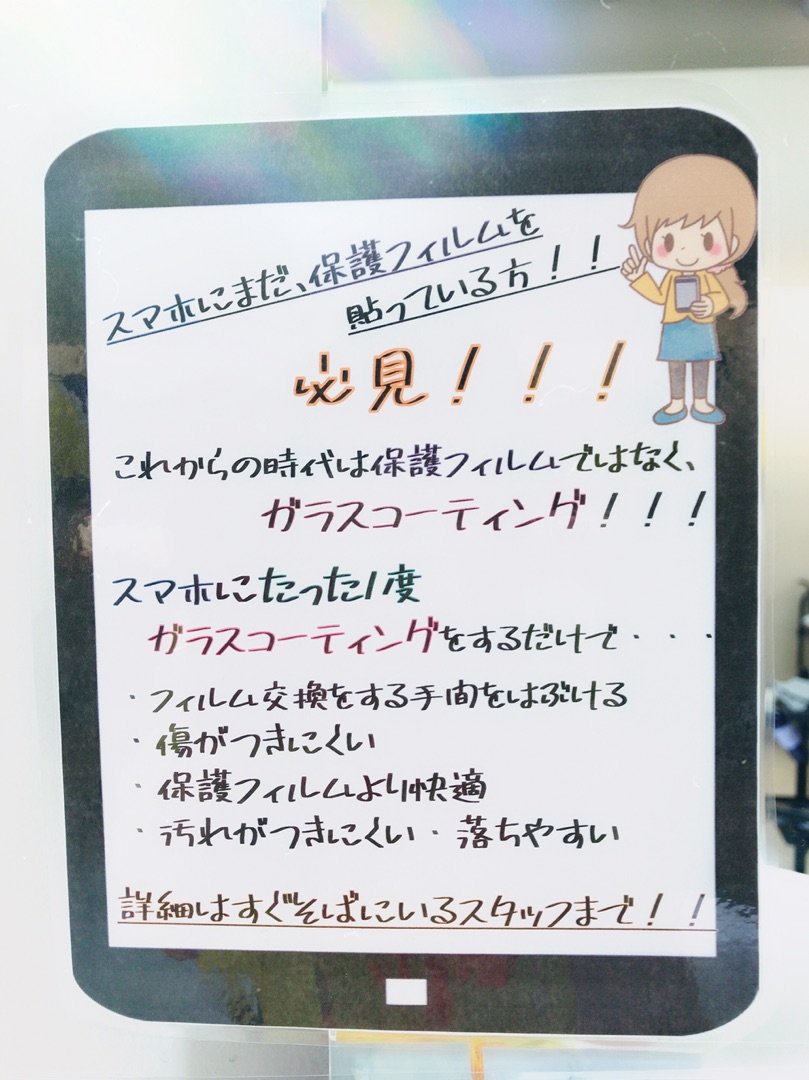 スマホにまだ、保護フィルムを
貼っている方！！
必見！！！
これからの時代は保護フィルムではなく、
ガラスコーティング！！！
スマホにたった1度
ガラスコーティングをするだけで・・・
・フィルム交換をする手間をはぶける
・傷がつきにくい
・保護フィルムより快適
・汚れがつきにくい・落ちやすい
詳細はすぐそばにいるスタッフまで！！